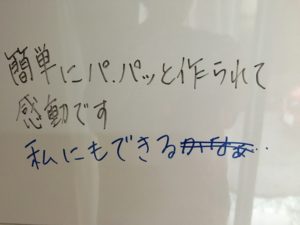 簡単にパ,パッと作られて
感動です
私にもできるかなぁ…